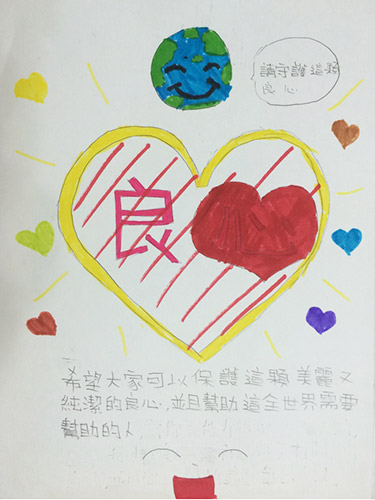 請守護這顆
良心
良心
希望大家可以保護這顆美麗又
純潔的良心,並且幫助這全世界需要
幫助的人